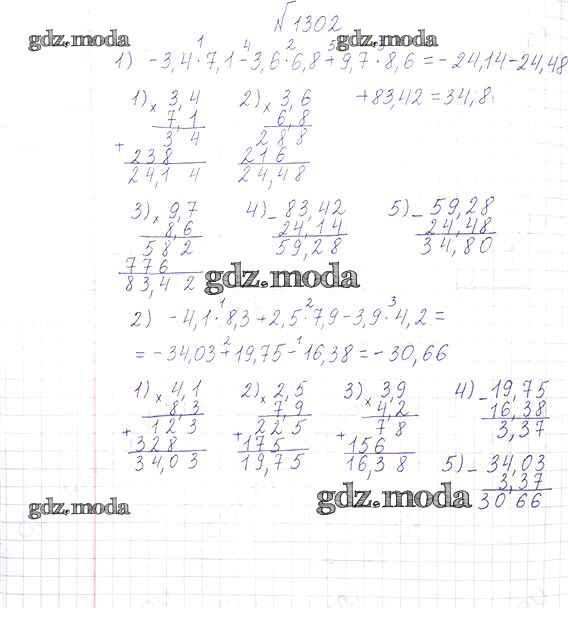 №1302
gdz.moda gdz.moda
1) -3,4·7,1-3,6·6,8+9,7·8,6=-24,14-24,48
+83,42=34,8
1) × 3,4 2) × 3,6
7,1 6,8
+ 34 288
238 216
24,14 24,48
3) × 9,7 4) - 83,42 5) - 59,28
8,6 24,14 24,48
582 59,28 34,80
776
83,42
gdz.moda
2) -4,1·8,3+2,5·7,9-3,9·4,2=
=-34,03+19,75-16,38=-30,66
1) × 4,1 2) × 2,5 3) × 3,9 4) - 19,75
8,3 7,9 4,2 16,38
+ 123 + 225 + 78 3,37
328 175 156
34,03 19,75 16,38
5) - 34,03
3,37
30 66
gdz.moda gdz.moda